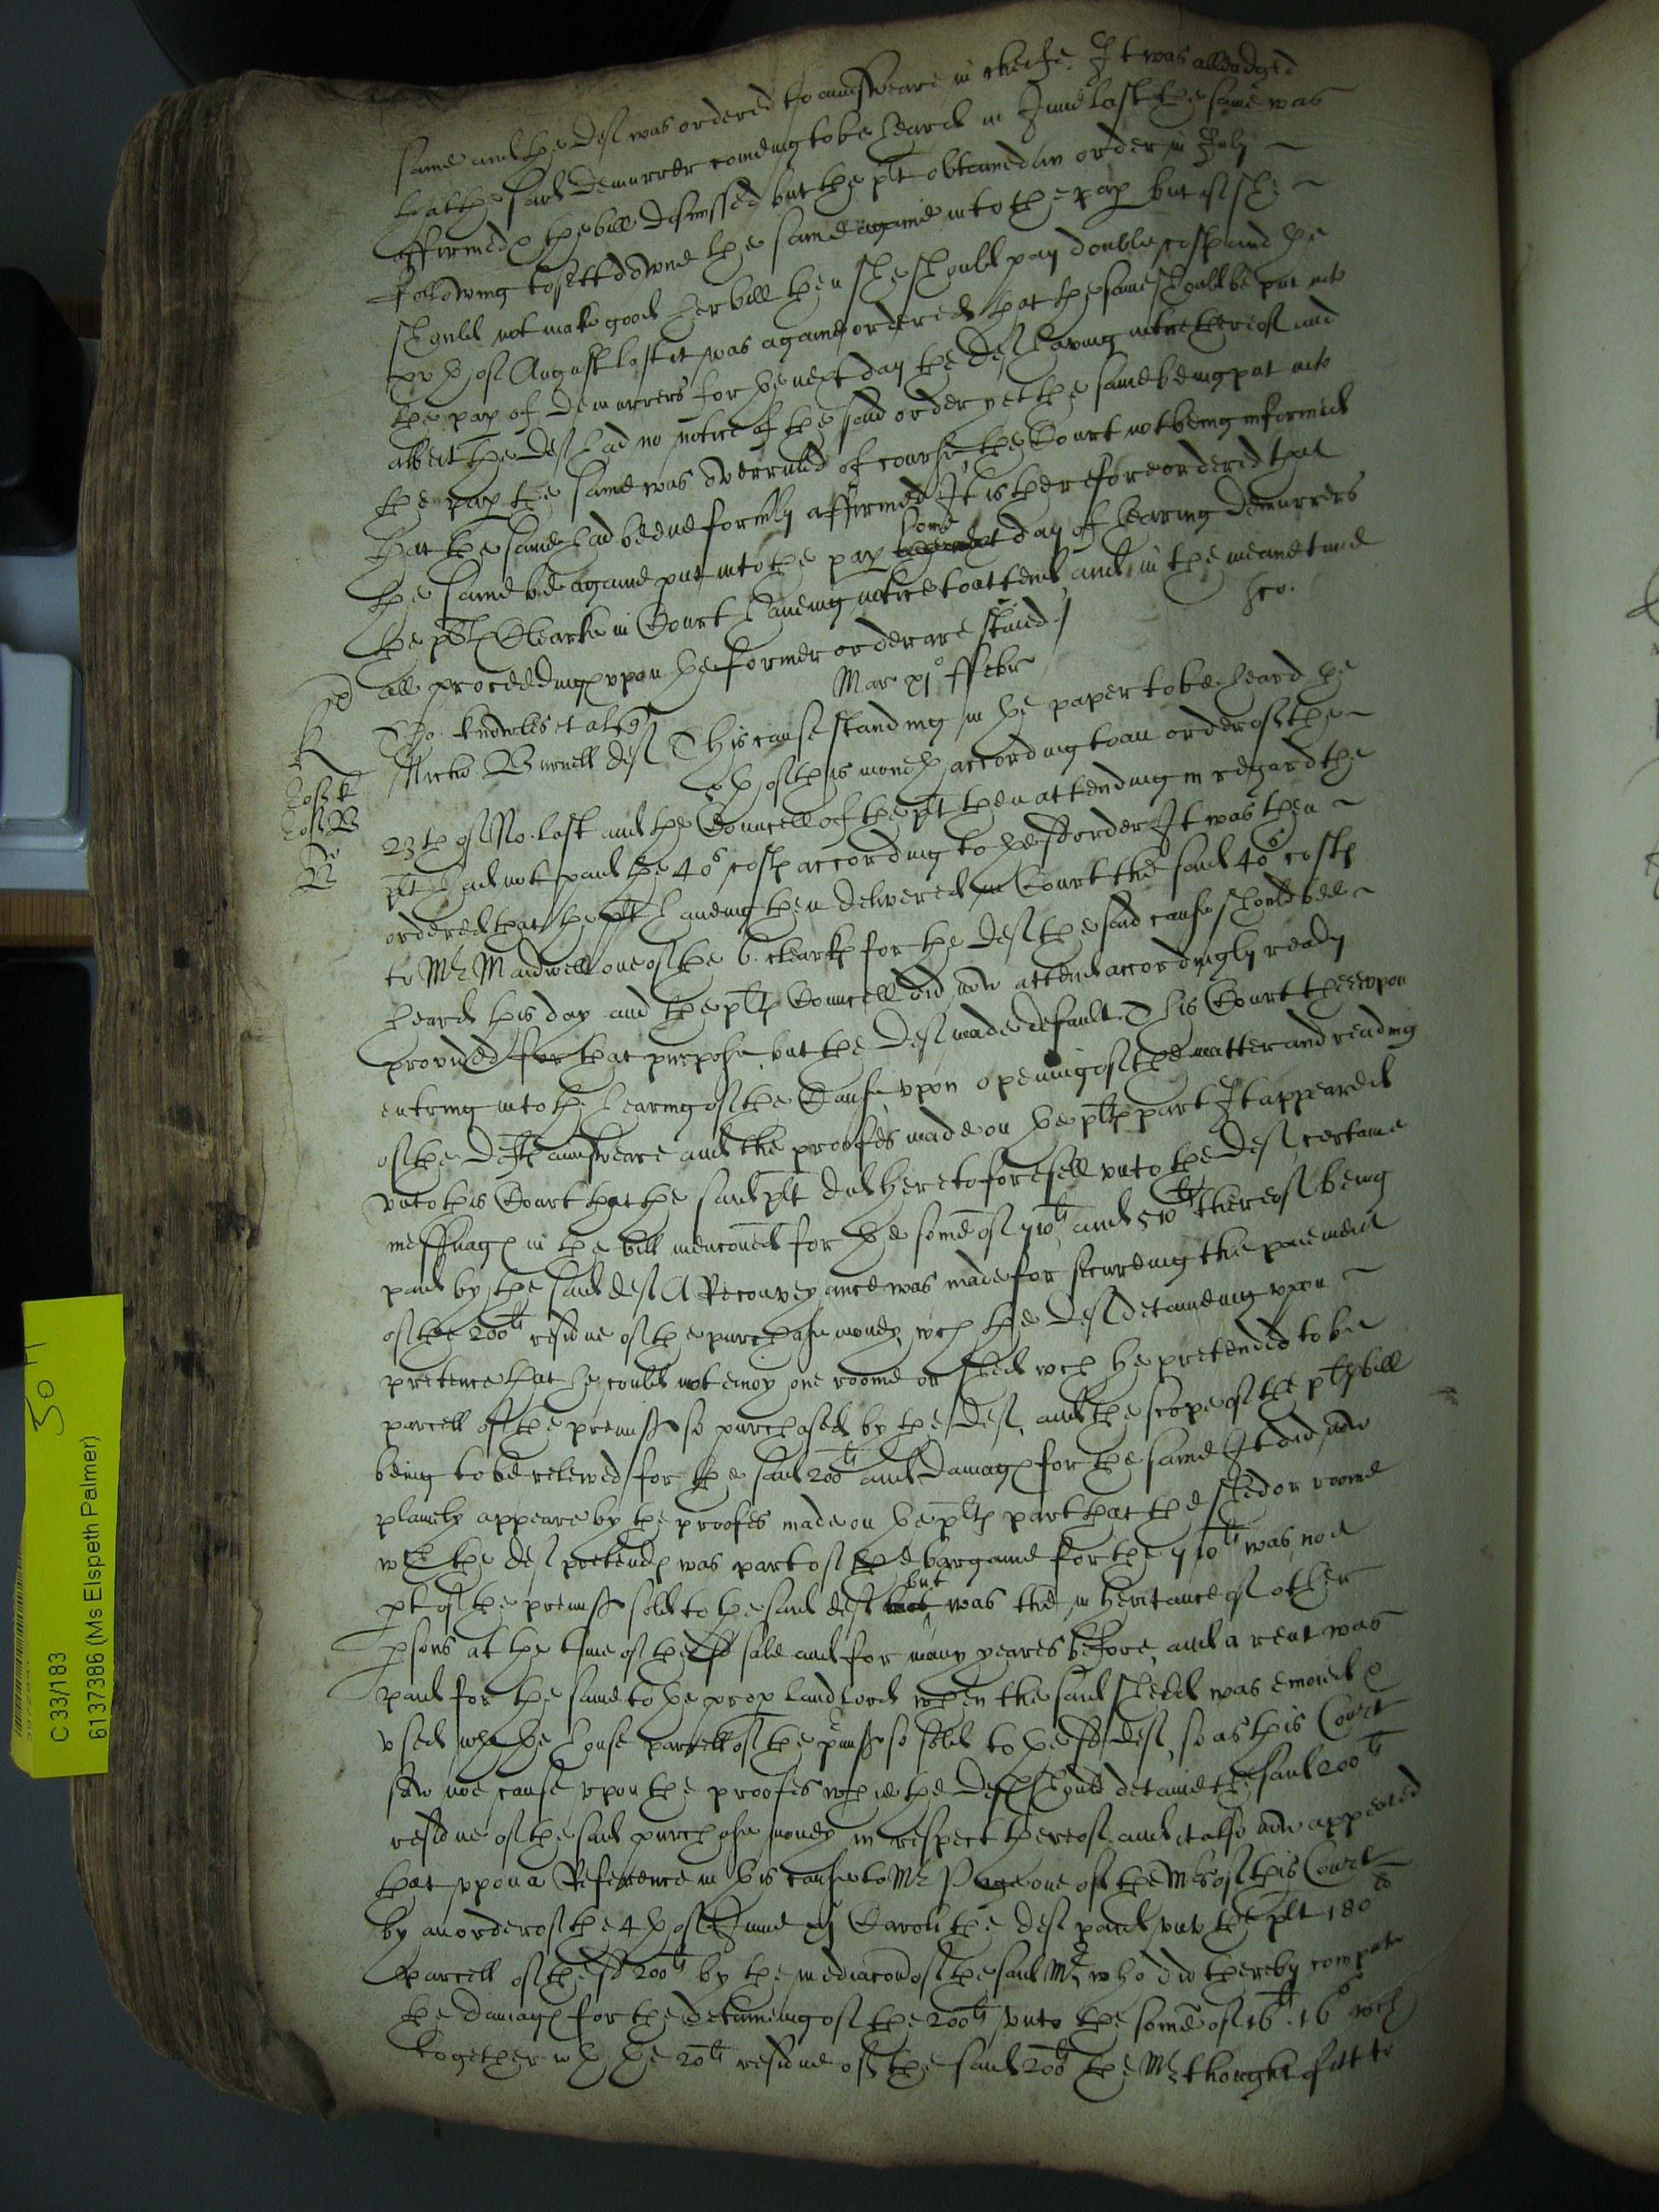 same and the Deft was ordered to aunsweare in cheife. It was alleadged
that the said Demurrer comeing to be heard in June last the same was
affirmed & the bill dismissed but the plt obteined an order in July
following to sett downe the same againe into the pap but if she
should not make good her bill then she should pay double costs and the
xvth of August last it was againe ordered that the same should be put into
the pap of Demurrers for the next day the Deft having notice thereof and
albeit the Deft had no notice of the said order yet the same being put into
the pap the same was overruled of course, the Court not being informed
that the same had beene formrly affirmed It is therefore ordered that
the same be againe put into the pap some day of hearing Demurrers
the plts Clearke in Court haveing notice to attend and in the meane time
all proceedings upon the former order are staied.
Mar xj° ffebr
Tho. Knowles et al
Micho. Burnell Deft This cause standing in the paper to be heard the
xth of this moneth according to an order of the
23th of No. last and the Councell of the plt then attending in regard the
plt had not paid the 40s costs according to the sd order It was then
ordered that the plt haveing then delivered in Court the said 40s costs
to Mr Maidwell one of the 6. clearks for the Deft the said cause should bee
heard this day and the plts Councell did now attend accordingly ready
provided for that purpose, but the Deft made default. This Court thereupon
entring into the hearing of the Cause, upon opening of the matter and reading
of the Defts aunsweare and the proofes made on the plts part It appeared
unto this Court that the said plt did heretofore sell unto the Deft certaine
messuags in the bill mencioned for the some of 710li and 510li thereof being
paid by the said Deft A Reconveyance was made for secureing the paiement
of the 200li residue of the purchase money, wch the Deft detaineing upon
pretence that he could not enioy one roome or shed wch he pretended to be
parcell of the premiss so purchased by the Deft, and the scope of the plts bill
being to be releived for the said 200li and Damags for the same It did now
plainely appeare by the proofes made on the plts part that the shed or roome
wch the deft pretends was part of the bargaine for the 710li was noe
pt of the premiss sold to the said deft but was the inheritance of other
psons at the time of the sd sale and for many yeares before, and a rent was
paid for the same to the prop landlord when the said shedd was enioied &
used wth the house parcell of the pmiss so sold to the sd Deft, so as this Court
saw noe cause upon the proofes why the Deft should detaine the said 200li
residue of the said purchase money in respect thereof. and it also now appeared
that upon a Reference in this cause to Mr Page one of the Mrs of this Court
by an order of the 4th of June xj Caroli the Deft paid unto the plt 180li
parcell of the sd 200li by the mediacon of the said Mr, who did thereby compute
the Damags for the detaineing of the 200li unto the some of 16li. 16s wch
together wth the 20li residue of the said 200li the Mr thought fitt to
K
B
50 H
C 33/183
6137386 (Ms Elspeth Palmer)